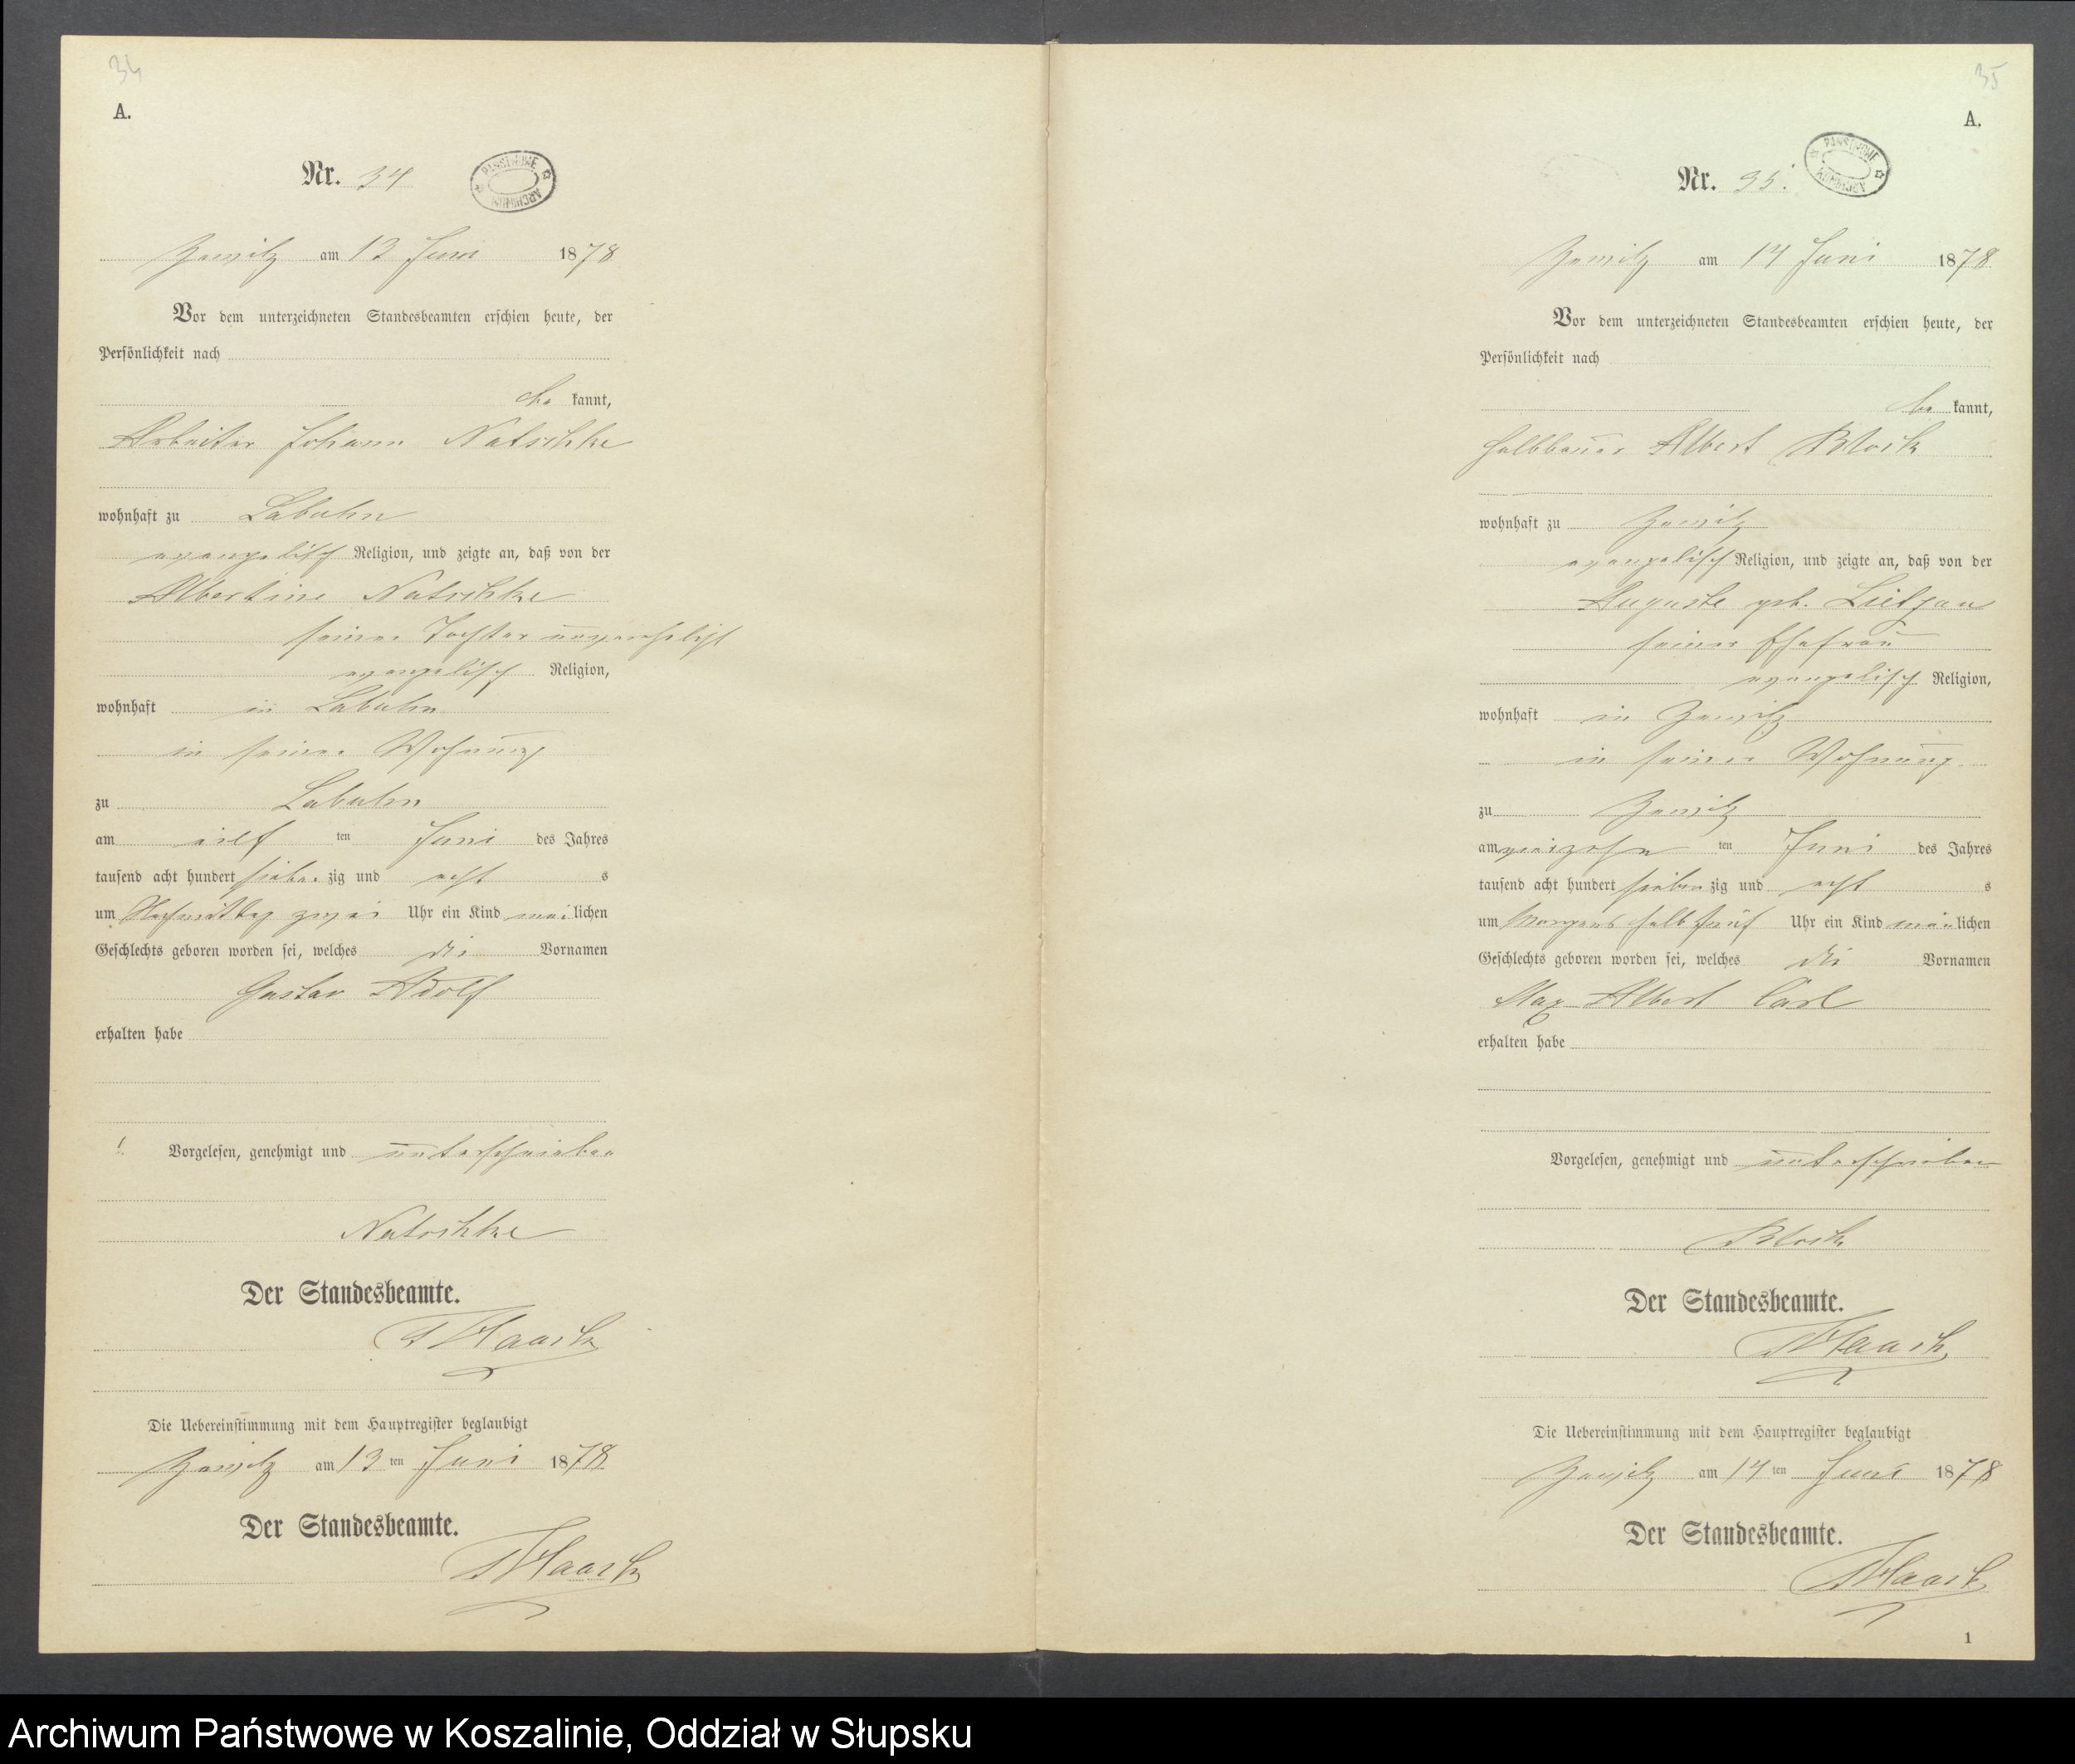 34
A.
Nr. 34
PAŃSTWOWE ARCHIWUM
Zewitz am 13 Juni 1878
Vor dem unterzeichneten Standesbeamten erschien heute, der
Persönlichkeit nach
be kannt,
Arbeiter Johann Natschke
wohnhaft zu Labuhn
evangelisch Religion, und zeigte an, daß von der
Albertine Natschke
seiner Tochter unverehelicht
evangelisch Religion,
wohnhaft in Labuhn
in seiner Wohnung
zu Labuhn
am eilf ten Juni des Jahres
tausend acht hundert sieben zig und acht s
um Nachmittag zwei Uhr ein Kind män lichen
Geschlechts geboren worden sei, welches die Vornamen
Gustav Adolf
erhalten habe
Vorgelesen, genehmigt und unterschrieben
Natschke
Der Standesbeamte.
Haack
Die Uebereinstimmung mit dem Hauptregister beglaubigt
Zewitz am 13 ten Juni 1878
Der Standesbeamte.
Haack
35
A.
Nr. 35.
PAŃSTWOWE ARCHIWUM
Zewitz am 14 Juni 1878
Vor dem unterzeichneten Standesbeamten erschien heute, der
Persönlichkeit nach
be kannt,
Halbbauer Albert Block
wohnhaft zu Zewitz
evangelisch Religion, und zeigte an, daß von der
Auguste geb. Lietzau
seiner Ehefrau
evangelisch Religion,
wohnhaft in Zewitz
in seiner Wohnung
zu Zewitz
am vierzehn ten Juni des Jahres
tausend acht hundert sieben zig und acht s
um Morgens halb fünf Uhr ein Kind män lichen
Geschlechts geboren worden sei, welches die Vornamen
Max Albert Carl
erhalten habe
Vorgelesen, genehmigt und unterschrieben
Block
Der Standesbeamte.
Haack
Die Uebereinstimmung mit dem Hauptregister beglaubigt
Zewitz am 14 ten Juni 1878
Der Standesbeamte.
Haack
1
Archiwum Państwowe w Koszalinie, Oddział w Słupsku